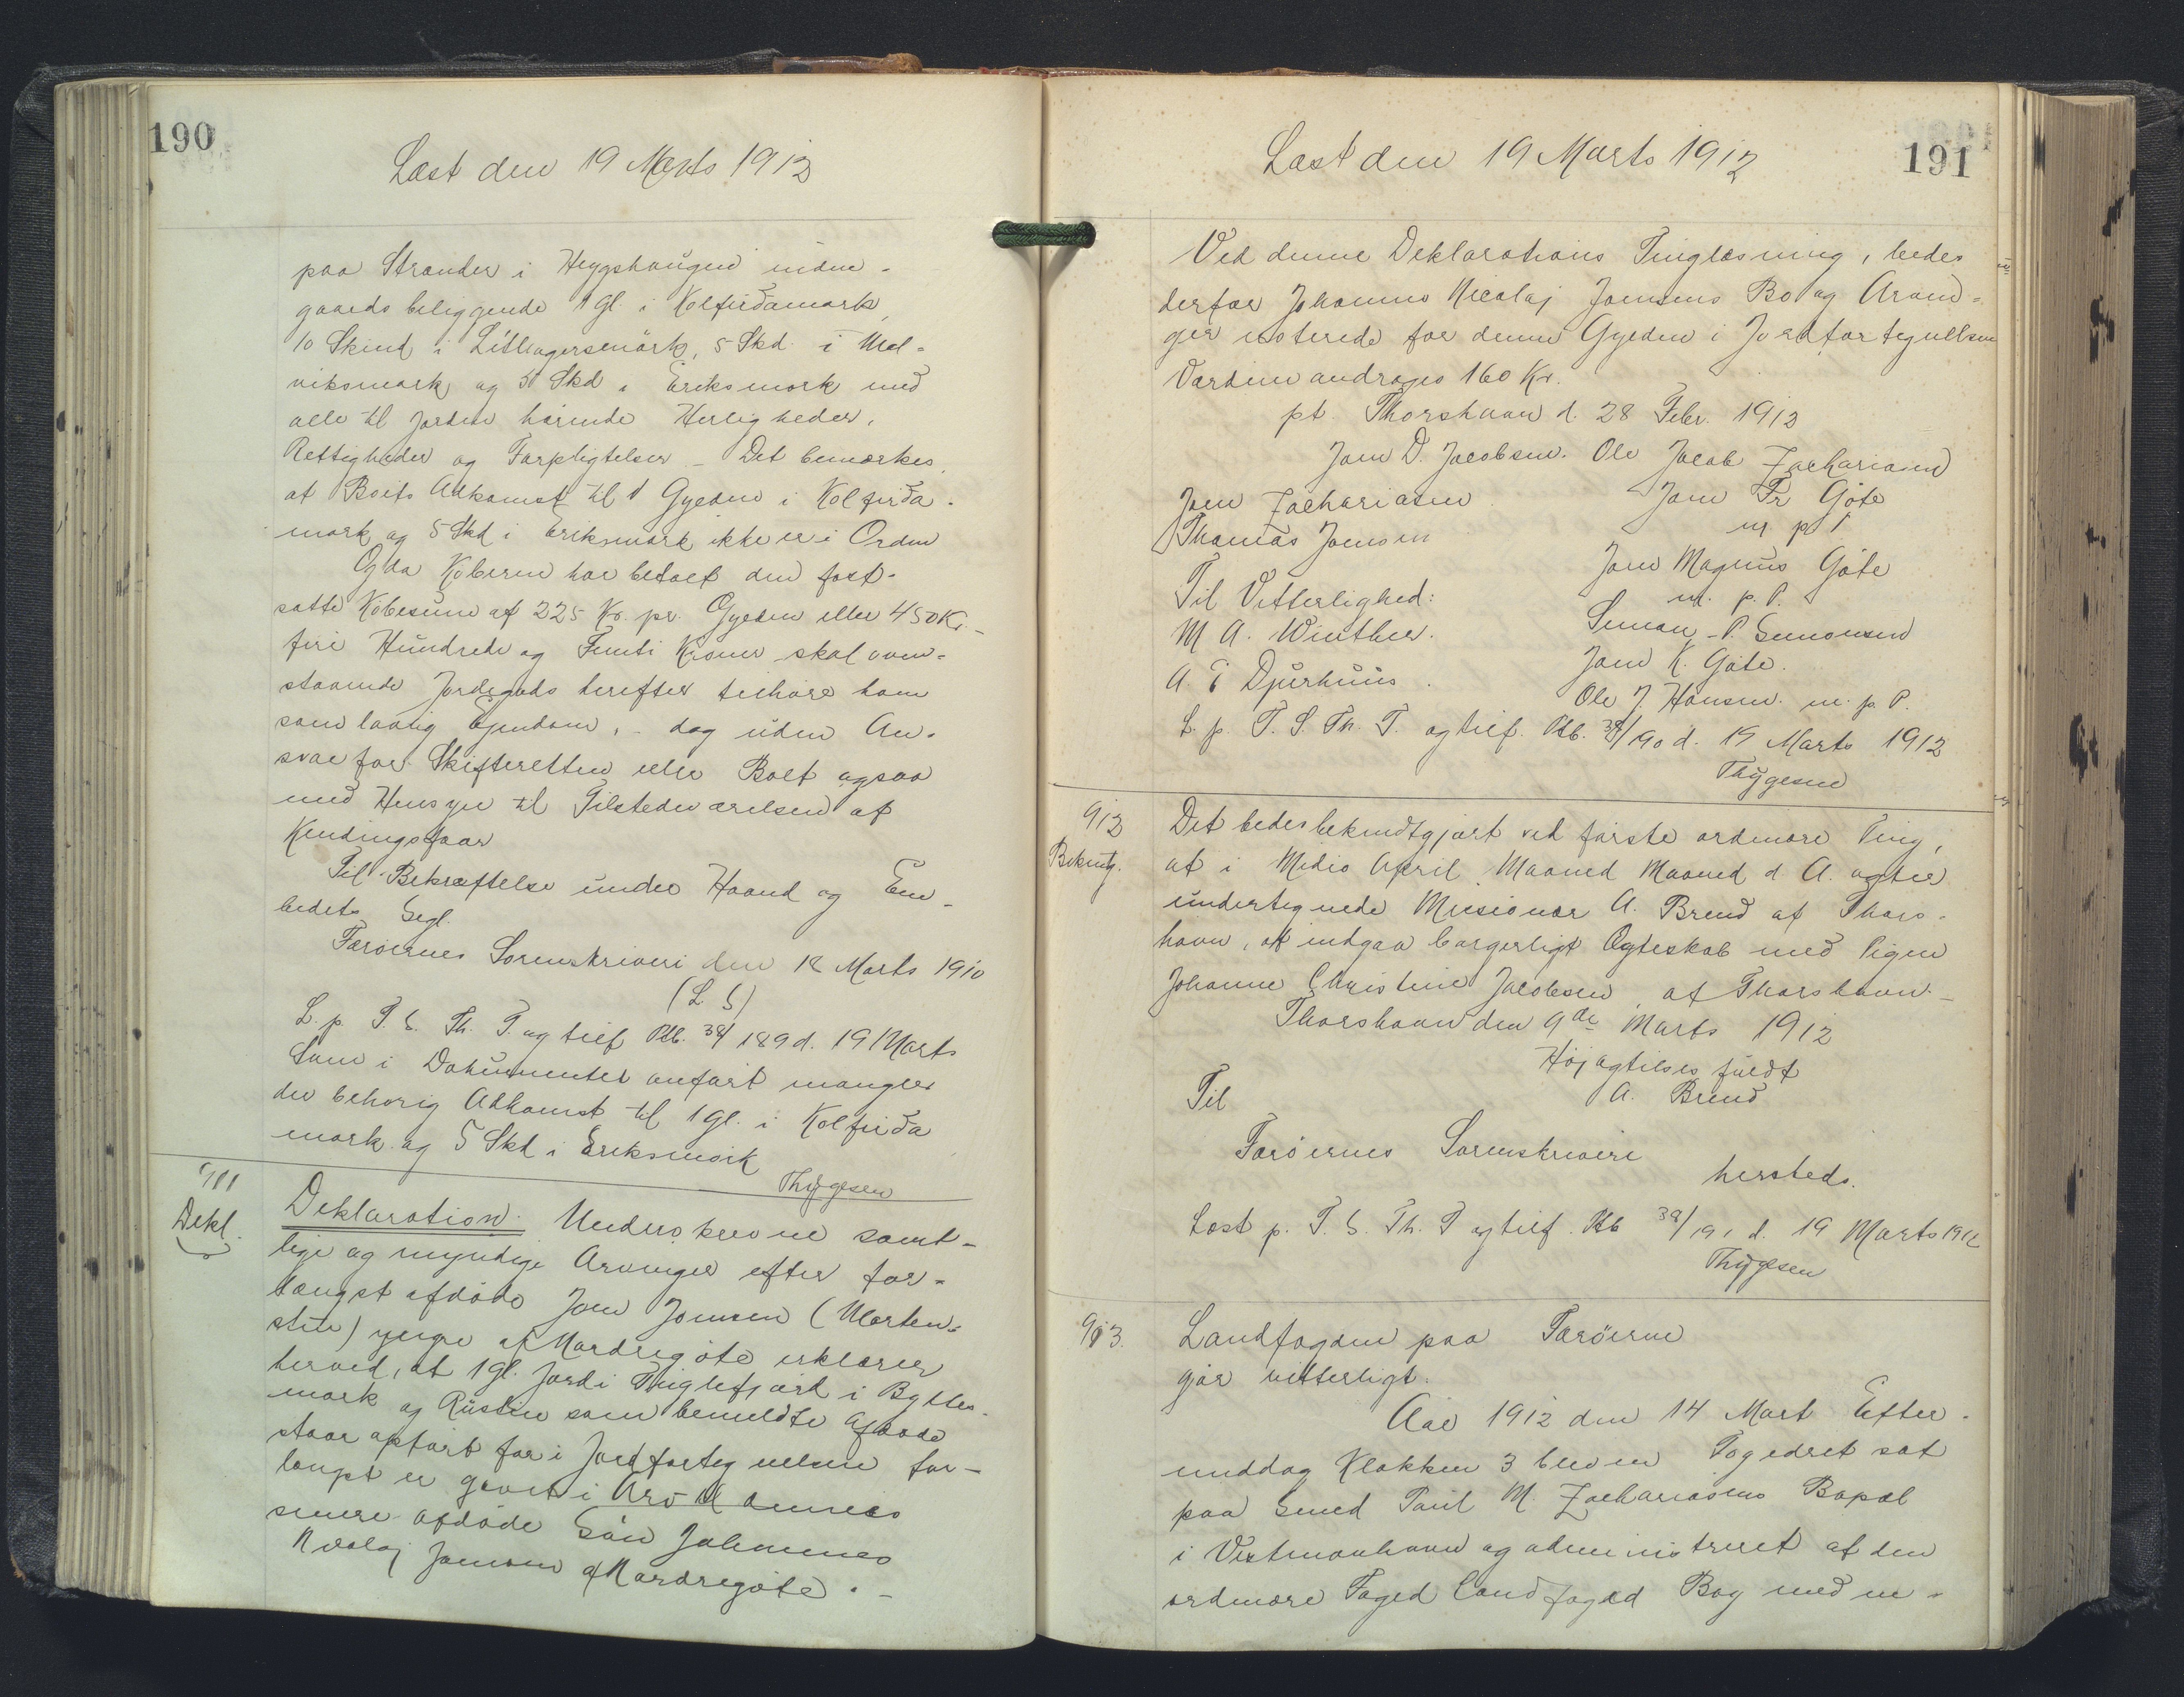 190
Læst den 19 Marts 1912
paa Strander i Heygshaugen inden-
gaards beliggende 1 Gl. i Kolfirdamark,
10 Skind i Litlhagersmörk, 5 Skd. i Mel-
viksmark og 5 Skd i Eriksmork med
alle til Jorden hørende Herligheder,
Rettigheder og Forpligtelser - Det bemærkes
at Boets Adkomst til 1 Gylden i Kolfirda-
mork og 5 Skd i Eriksmørk ikke er i Orden
Og da Køberen har betalt den fast-
satte Købesum af 225 Kr. pr. Gylden eller 450 Kr -
fire Hundrede og Femti Kroner skal oven-
staaende Jordegods herefter tilhøre ham
som lovlig Ejendom, - dog uden An-
svar for Skifteretten eller Boet ogsaa
med Hensyn til Tilstedeværelsen af
Kendingsfaar
Til Bekræftelse under Haand og Em-
bedets Segl.
Færøernes Sorenskriveri den 18 Marts 1910
(L. S)
L. p. T. S. Th. T. og tilf Ptb. 38/189 d. 19 Marts
Som i Dokumentet anført mangler
der behørig Adkomst til 1 Gl. i Kolfirda
mork og 5 Skd i Eriksmørk
Thygesen
911
Dekl.
Deklaration. Underskrevne samt-
lige og myndige Arvinger efter for-
længst afdøde Joen Joensen (Morten-
stue) yngre af Nordregøte erklærer
herved, at 1 Gl. Jord i Fuglefjord i Byttes-
mork og Rustin som bemeldte Afdøde
staar opført for i Jordfortegnelsen for-
længst er givet i Arv til dennes
senere afdøde Søn Johannes
Nicolaj Joensen af Nordregøte. -
191
Læst den 19 Marts 1912
Ved denne Deklarations Tinglæsning, bedes
derfor Johannes Nicolaj Joensens Bo og Arvin-
ger noterede for denne Gylden i Jordfortegnelsen
Værdien andrages 160 Kr.
pt. Thorshavn d. 28 Febr. 1912
Joen D. Jacobsen. Ole Jacob Zachariasen
Joen Zachariasen Joen Fr Gøte
Thomas Joensen m p P
Joen Magnus Gøte
Til Vitterlighed: m. p. P.
M A. Winther. Simon P. Simonsen
A. E Djurhuus. Joen K. Gøte.
Ole J. Hansen. m. p. P.
L. p. T. S. Th. T. og tilf. Ptb. 38/190 d. 19 Marts 1912
Thygesen
912
Bekentg.
Det bedes bekendtgjort ved første ordinære Ting,
at i Medio April Maaned Maaned d A. agter
undertegnede Missionær A. Brend af Thors-
havn, at indgaa borgerligt Ægteskab med Pigen
Johanne Christine Jacobsen, af Thorshavn. -
Thorshavn den 9de Marts 1912
Højagtelsesfuldt
A. Brend
Til
Færøernes Sorenskriveri
hersteds.
Læst p. T. S. Th. T og tilf. Ptb 38/191 d. 19 Marts 1912
Thygesen
913.
Landfogden paa Færøerne
gør vitterligt.
Aar 1912 den 14 Mart Efter-
middag Klokken 3 blev en Fogedret sat
paa Smed Poul M. Zachariasens Bopæl
i Vestmanhavn og administreret af den
ordinære Foged Landfoged Bog med un-